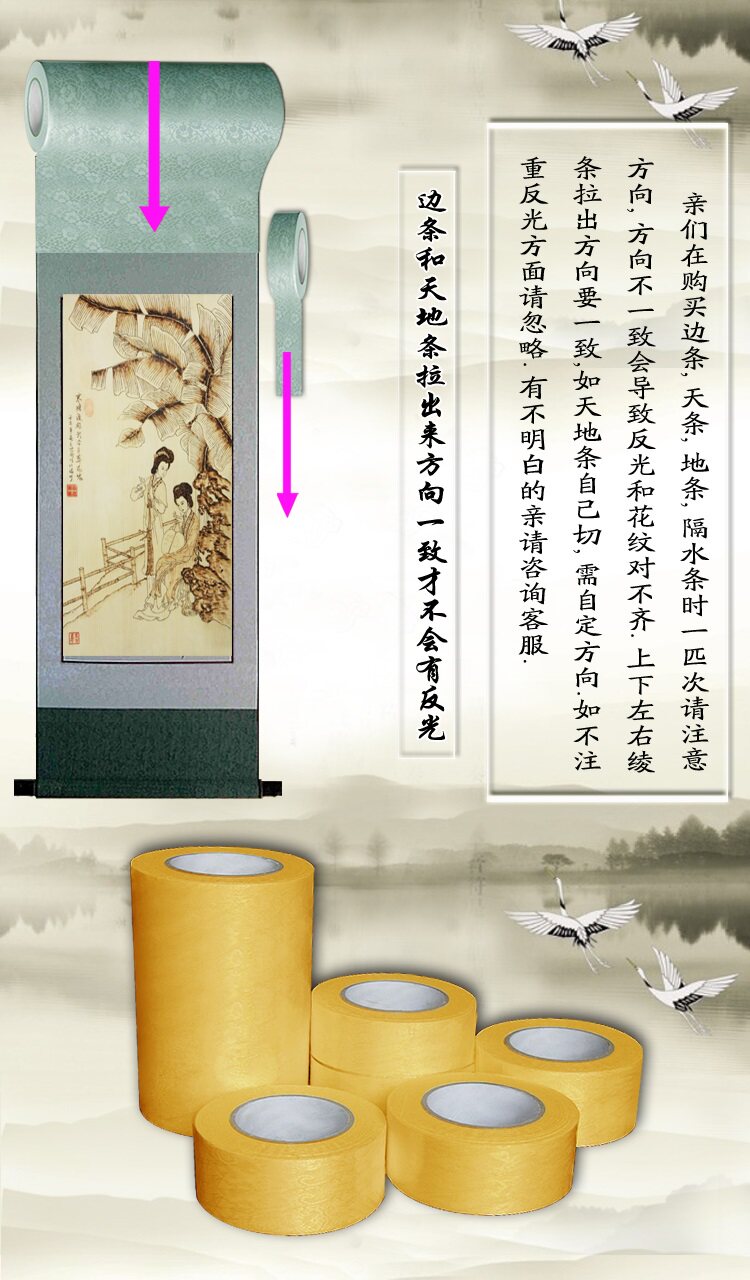 亲们在购买边条,天条,地条,隔水条时一匹次请注意
方向,方向不一致会导致反光和花纹对不齐.上下左右绫
条拉出方向要一致,如天地条自己切,需自定方向.如不注
重反光方面请忽略.有不明白的亲请咨询客服.
边条和天地条拉出来方向一致才不会有反光